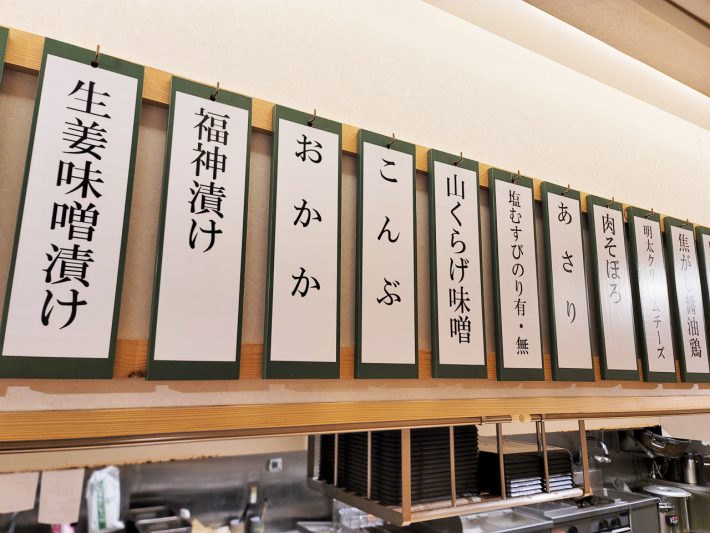 生姜味噌漬け
福神漬け
おかか
こんぶ
山くらげ味噌
塩むすびのり有・無
あさり
肉そぼろ
明太クリームチーズ
焦がし醤油鶏